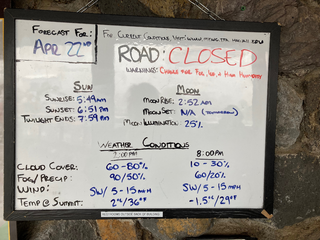 FORECAST FOR:
APR 22ND
FOR CURRENT CONDITIONS VISIT:
ROAD: CLOSED
WARNINGS: CHANCE FOR FOG, ICE, & HIGH HUMIDITY
SUN
SUNRISE: 5:49AM
SUNSET: 6:51PM
TWILIGHT ENDS: 7:59PM
MOON
MOON RISE: 2:52AM
MOON SET: N/A (TOMORROW)
MOON ILLUMINATION 25%
WEATHER CONDITIONS
2:00PM 8:00PM
CLOUD COVER: 60-80% 10-30%
FOG/PRECIP: 90/50% 60/20%
WIND: SW/5-15MPH SW/5-15MPH
TEMP @ SUMMIT: 2°C/36°F -1.5°C/29°F